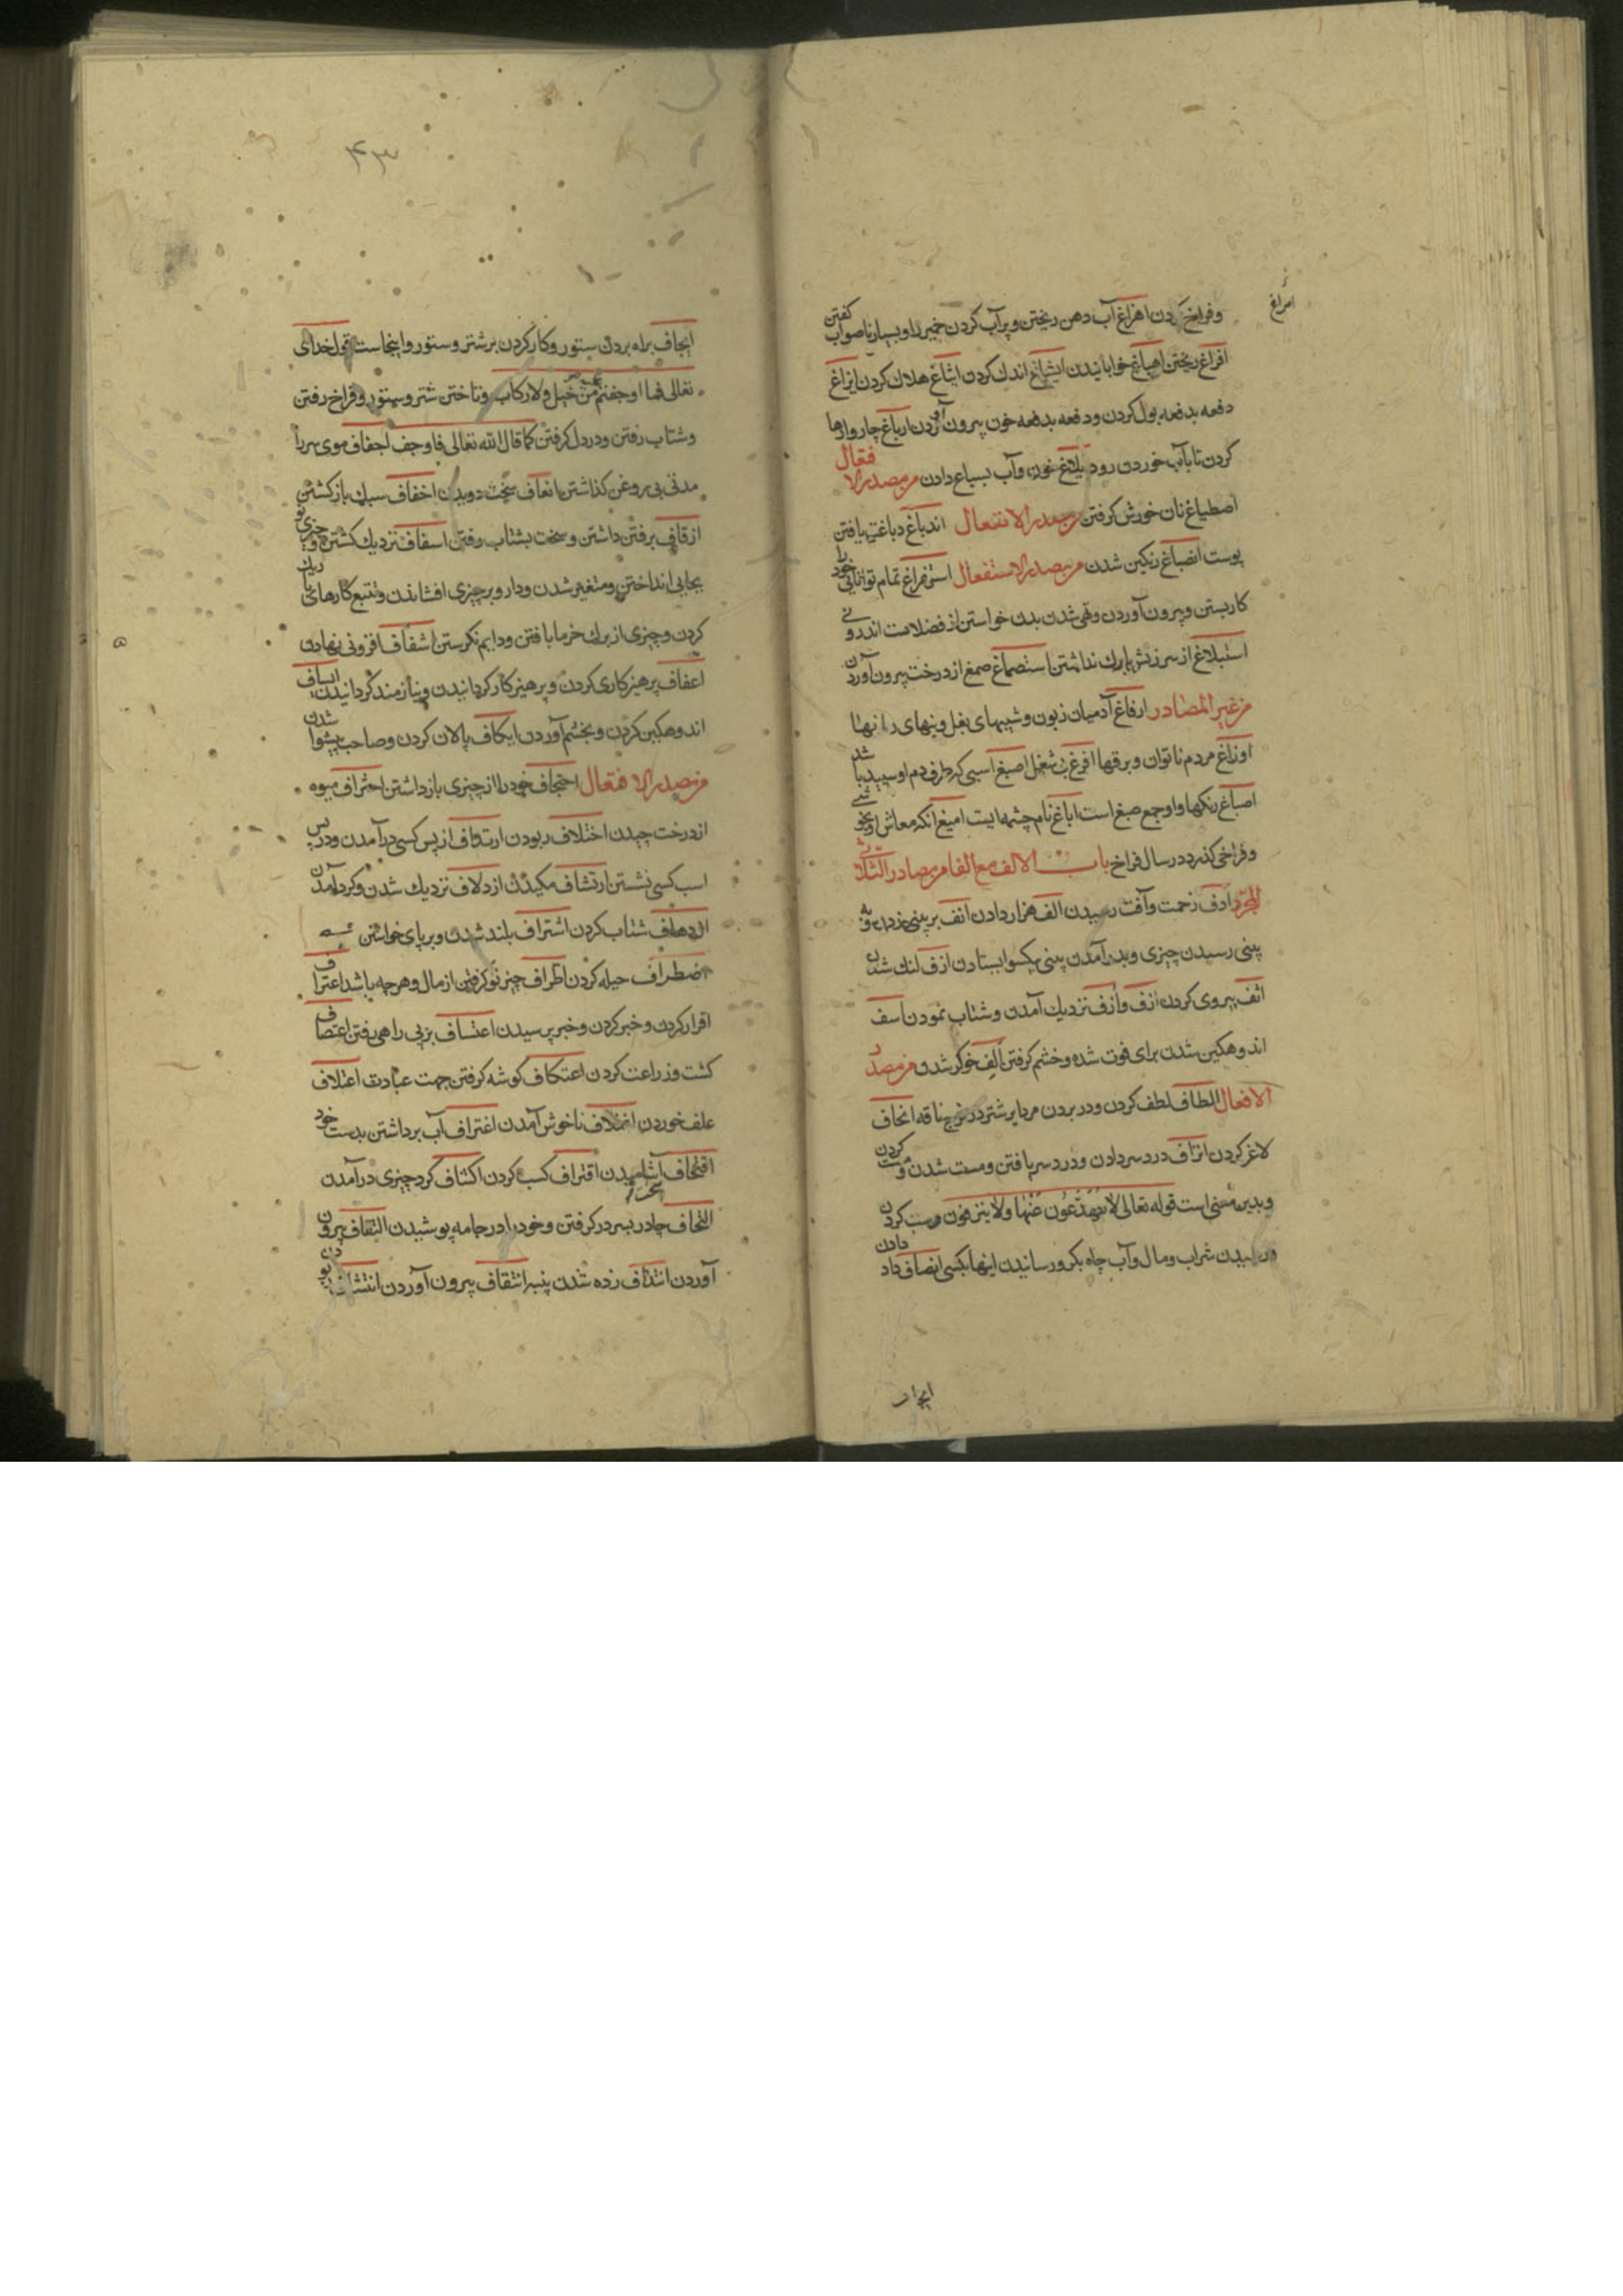 امراغ
وفراخ کردن امراغ آب دهن ریختن وپرآب کردن خمیر را وبسیار ناصواب گفتن
افراغ ریختن اهباغ خوابانیدن ایشاغ اندك کردن ایتاغ هلاك کردن ایزاغ
دفعه بدفعه بول کردن ودفعه بدفعه خون بیرون آوردن ارباغ چاروا رها
کردن تا بآب خوردن رود خون وآب بسباع دادن من مصدر الافتعال
اصطباغ نان خورش گرفتن من مصدر الانفعال اندباغ دباغت یافتن
پوست انصباغ رنگین شدن من مصدر الاستفعال استفراغ تمام توانایی خود را
کار بستن وبیرون آوردن وقی شدن بدن خواستن از فضلات اندرونی
استبلاغ از سرزنش باك نداشتن استصماغ صمغ از درخت بیرون آوردن
من غیر المصادر ارفاغ آدمیان زبون وشیبهای بغل وبنهای رانها
اوزاغ مردم ناتوان وبرقها افرغ بی شغل اصبغ اسبی که طرف دم او سپید باشد
اصباغ رنگها واو جمع صبغ است اباغ نام چشمه ایست امیغ آنکه معاش او بخوشی
وفراخی گذرد در سال فراخ باب الالف مع الفا من مصادر الثلاثی
المجرد ادف زحمت وآفت رسیدن الف هزار دادن انف بر بینی زدن
بینی رسیدن چیزی وبدر آمدن بینی یکسو ایستادن ازف لنك شدن
اثف پیروی کردن ازف وازف نزدیك آمدن وشتاب نمودن اسف
اندوهگین شدن برای فوت شده وخشم گرفتن الف خوگر شدن من مصدر
الافعال الطاف لطف کردن ودر بردن مرد ایر شتر در فرج ناقه انحاف
لاغر کردن انزاف درد سر دادن ودرد سر یافتن ومست شدن ومست کردن
وبدین معنی است قوله تعالی لا یصدعون عنها ولا ینزفون وسپ کردن
شراب ومال وآب چاه بکر ورسانیدن اینها بکسی انصاف داد دادن
ایجاف
۴۳
ایجاف براه بردن ستور وکار کردن بر شتر وستور وازینجاست قول خدای
تعالی فما اوجفتم علیه من خیل ولا رکاب وتاختن شتر وستور وفراخ رفتن
وشتاب رفتن ودر دل گرفتن کما قال الله تعالی فاوجف اجفاف موی سر را
مدتی بی روغن گذاشتن انعاف سخت دویدن اخفاف سبك بار گشتن
ازفاف برفتن داشتن وسخت بشتاب رفتن اسفاف نزدیك گشتن وچیزی
بجایی انداختن ومتغیر شدن ودارو بر چیزی افشاندن وتتبع کارهای
کردن وچیزی از برك خرما بافتن ودایم نگرستن اشفاف افزونی نهادن
اعفاف پرهیزکاری کردن وپرهیزکار گردانیدن وبنیازمند گردانیدن ایساف
اندوهگین کردن وبخشم آوردن ایکاف پالان کردن وصاحب پیشوا شدن
من مصدر الافتعال احتجاف خود را از چیزی باز داشتن اختراف میوه
از درخت چیدن اختلاف ربودن ارتداف از پس کسی درآمدن ودر پس
اسب کسی نشستن ارتشاف مکیدن ازدلاف نزدیك شدن وگرد آمدن
ازدهاف شتاب کردن اشتراف بلند شدن وبر پای خواستن
اضطراف حیله کردن اطراف چیز نو گرفتن از مال وهرچه باشد اعتراف
اقرار کردن وخبر کردن وخبر پرسیدن اعتساف بر بی راهی رفتن اعتصاف
کشت وزراعت کردن اعتکاف گوشه گرفتن جهت عبادت اعتلاف
علف خوردن ناخوش آمدن اغتراف آب برداشتن بدست خود
اقتحاف آشامیدن اقتراف کسب کردن اکتناف گرد چیزی درآمدن
التحاف چادر بسر درگرفتن وخود را در جامه پوشیدن التقاف بیرون
آوردن انتداف زده شدن پنبه انتقاف بیرون آوردن انتشاف